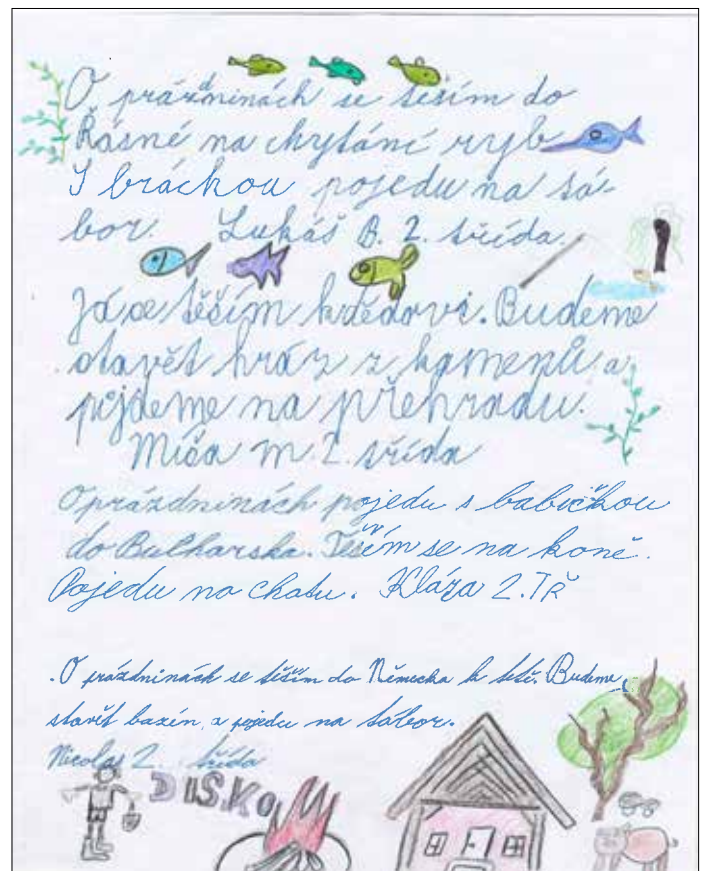 O prázdninách se těším do
Řásné na chytání ryb
S bráchou pojedu na tá-
bor. Lukáš B. 2. třída.
Já se těším k dědovi. Budeme
stavět hráz z kamenů a
pojdeme na přehradu.
Míša M. 2. třída
O prázdninách pojedu s babičkou
do Bulharska. Těším se na koně.
Pojedu na chatu. Klára 2. TŘ
O prázdninách se těším do Německa k tetě. Budeme
stavět bazén, a pojedu na tábor.
Nicolas 2. třída
DISKO